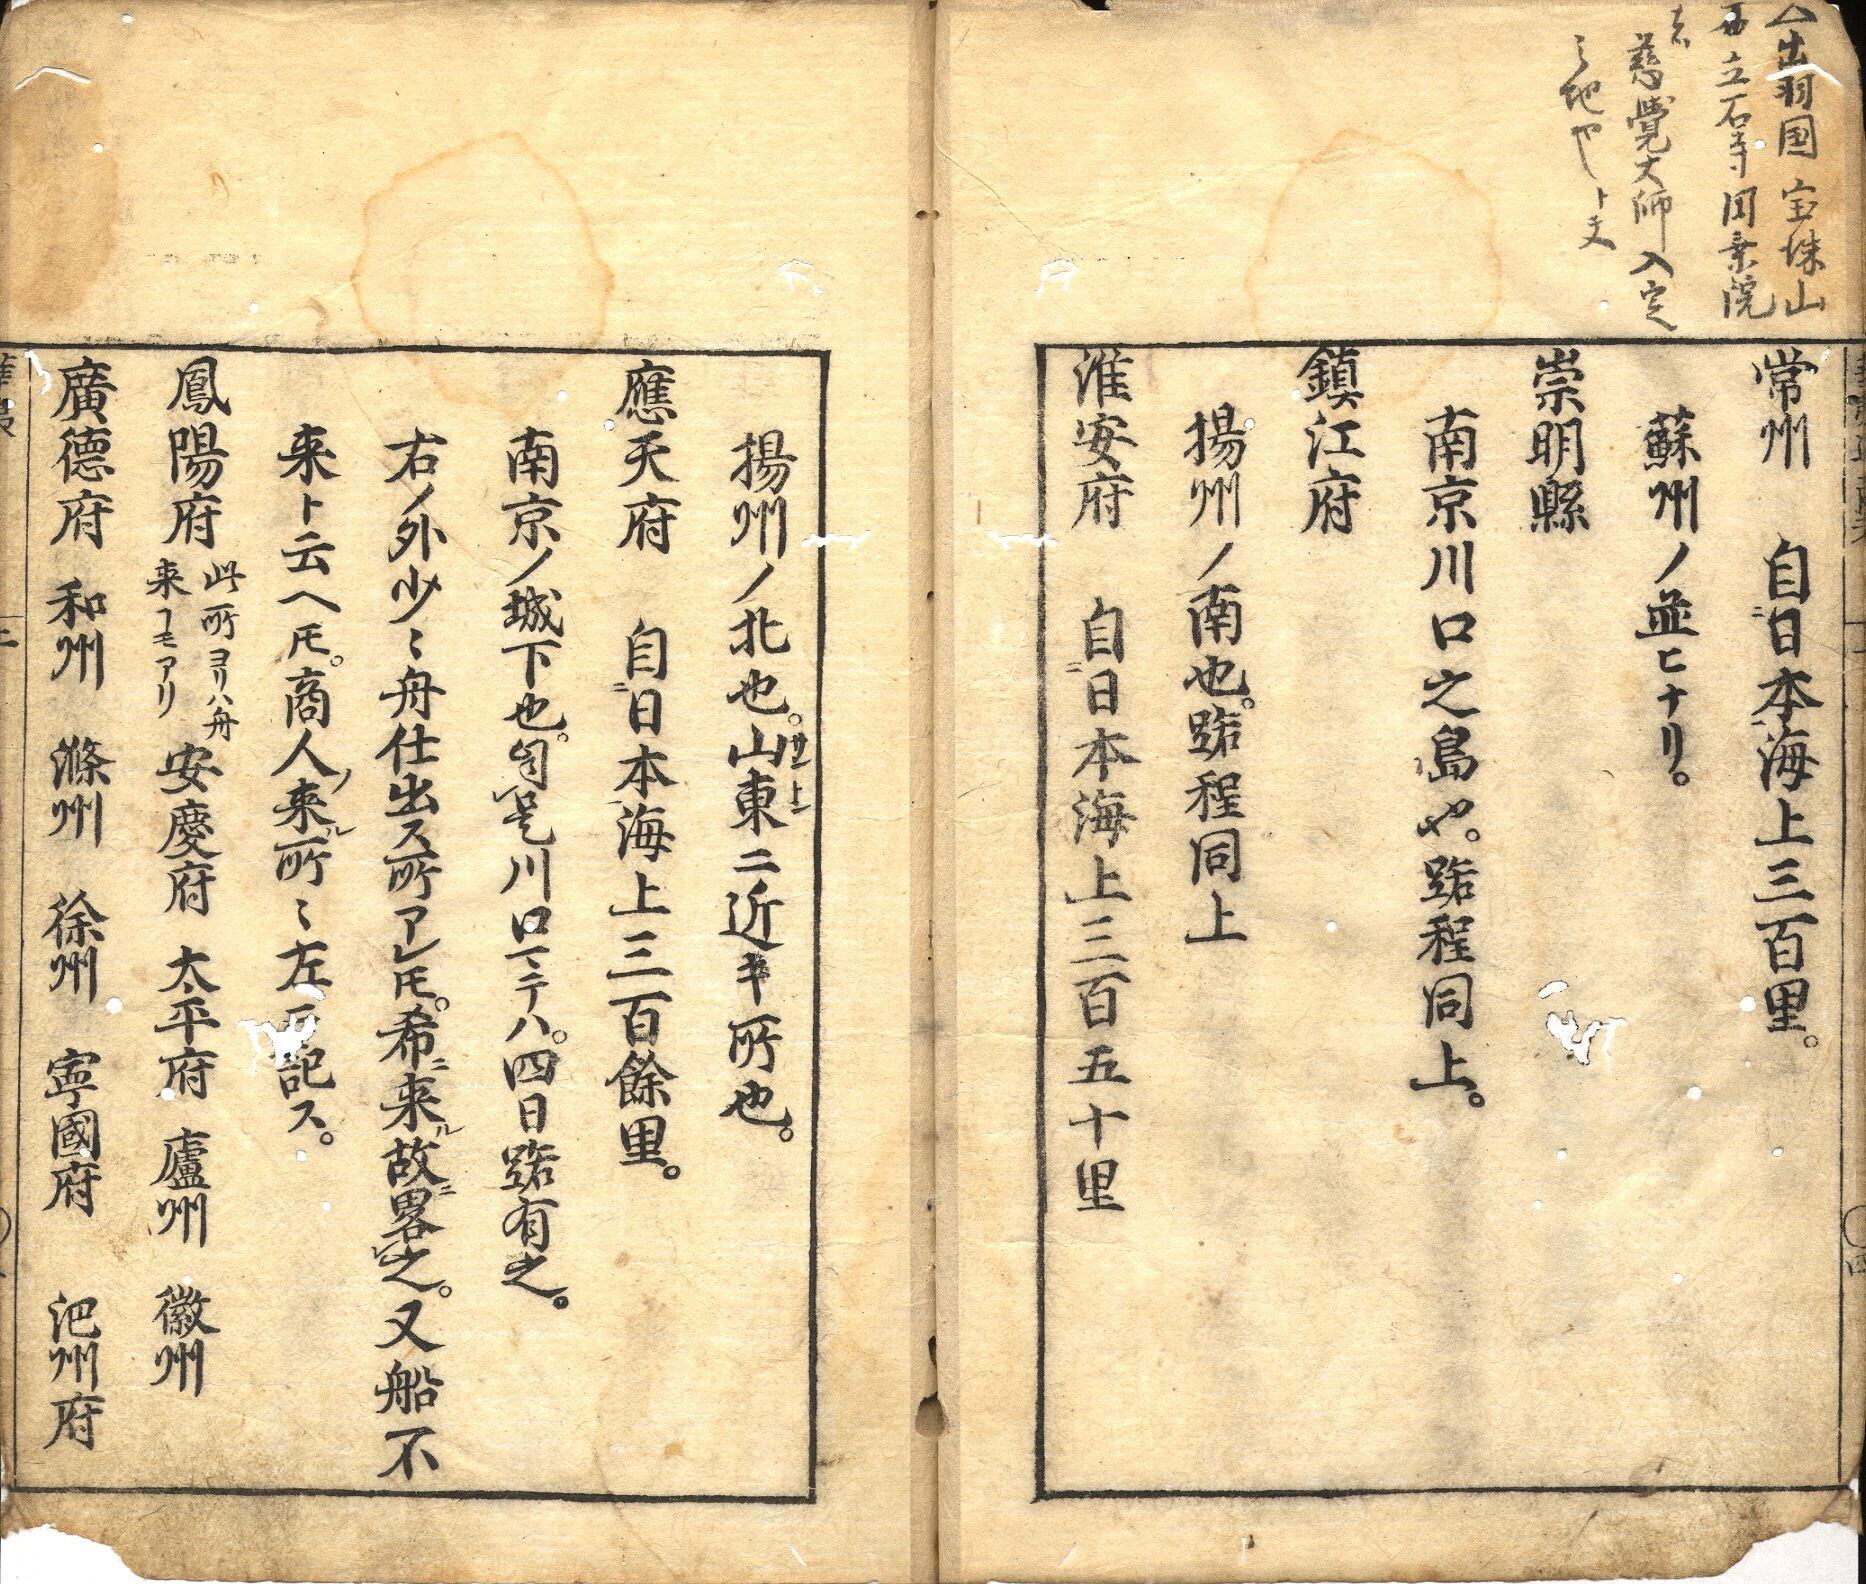 出羽国 宝珠山
立石寺
慈覺大師入定
之地也ト
常州 自日本海上三百里。
蘇州ノ並ヒナリ。
崇明縣
南京川口之島也。路程同上。
鎮江府
揚州ノ南也。路程同上
淮安府 自日本海上三百五十里
揚州ノ北也。山東ニ近キ所也。
應天府 自日本海上三百餘里。
南京ノ城下也。自是川口マテハ。四日路有之。
右ノ外少々舟仕出ス所アレ𪜈。希ニ来ル故ニ畧之。又船不
来ト云ヘ𪜈。商人ノ来ル所々左ニ記ス。
鳳陽府 此所ヨリハ舟来ヿモアリ 安慶府 太平府 廬州 徽州
廣德府 和州 滁州 徐州 寧國府 池州府